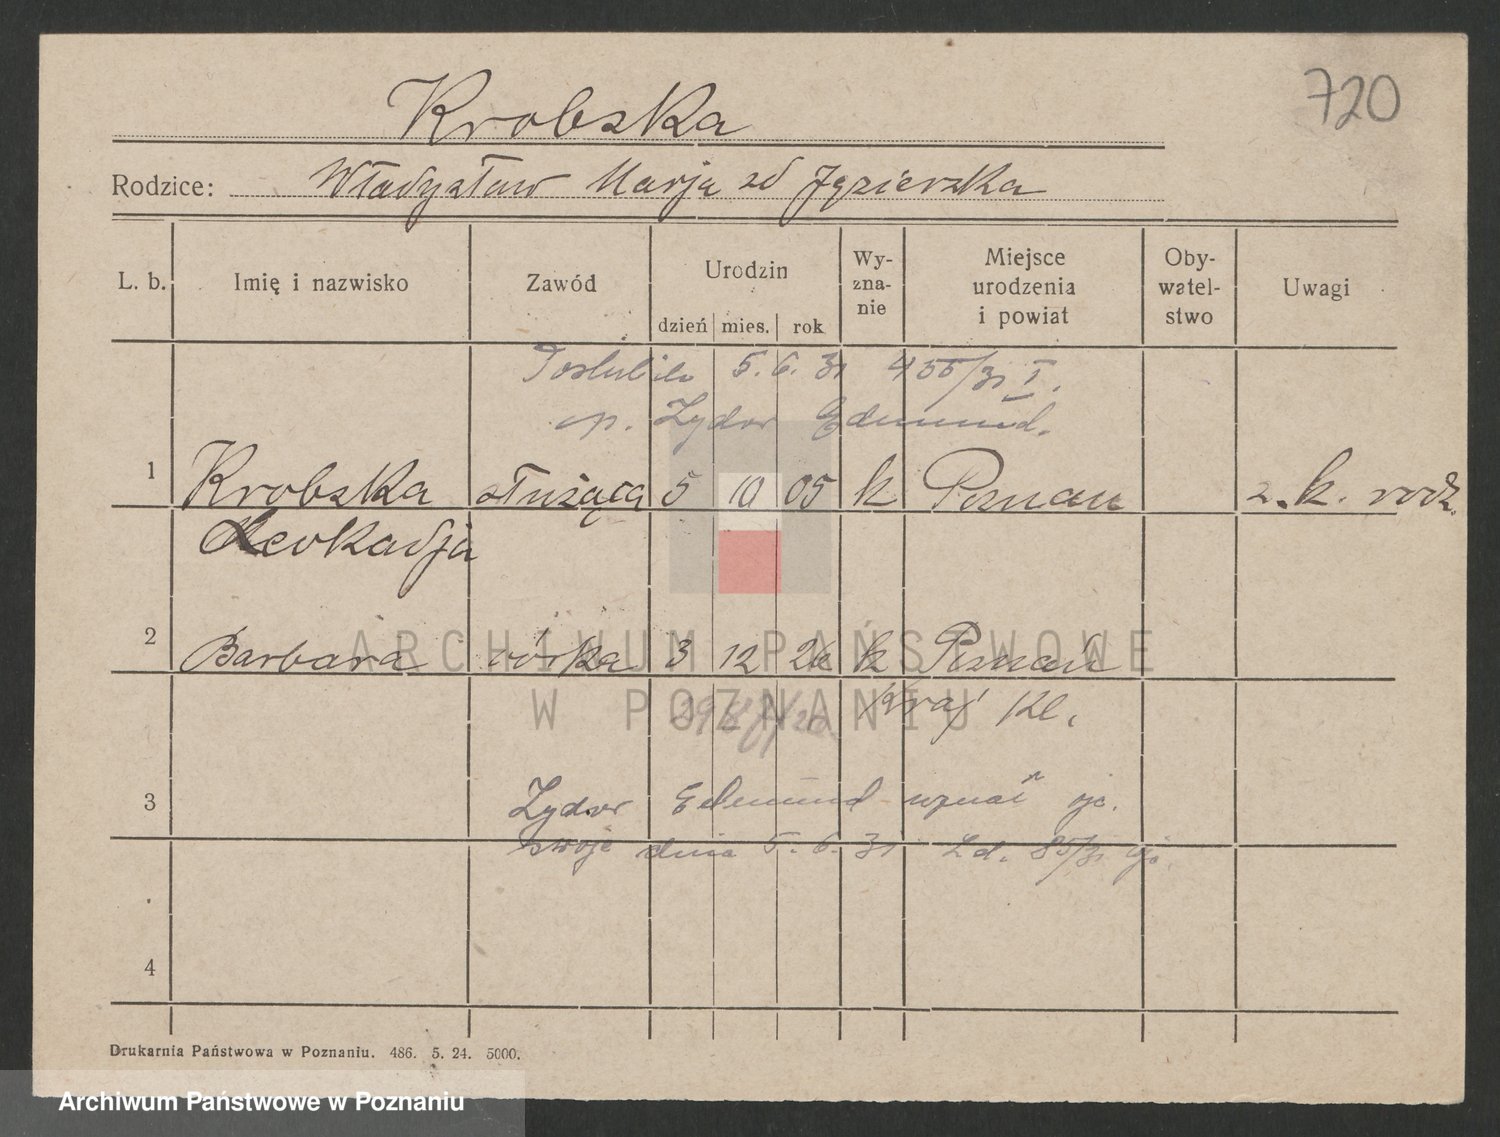 720
Krobska
Rodzice: Władysław Marja zd Jęzierska
L. b. Imię i nazwisko Zawód Urodzin dzień mies. rok Wy-zna-nie Miejsce urodzenia i powiat Oby-watel-stwo Uwagi
Poślubiła 5. 6. 31 455/31 I.
op. Zydor Edmund.
1 Krobska służąca 5 10 05 k Poznań z. k. rodz.
Leokadja
2 Barbara córka 3 12 26 k Poznań
Kraj Kl.
3 Zydor Edmund uznał ojc.
swoje dnia 5. 6. 31 Ld. 85/31
4
Drukarnia Państwowa w Poznaniu. 486. 5. 24. 5000.
ARCHIWUM PAŃSTWOWE
W POZNANIU
Archiwum Państwowe w Poznaniu